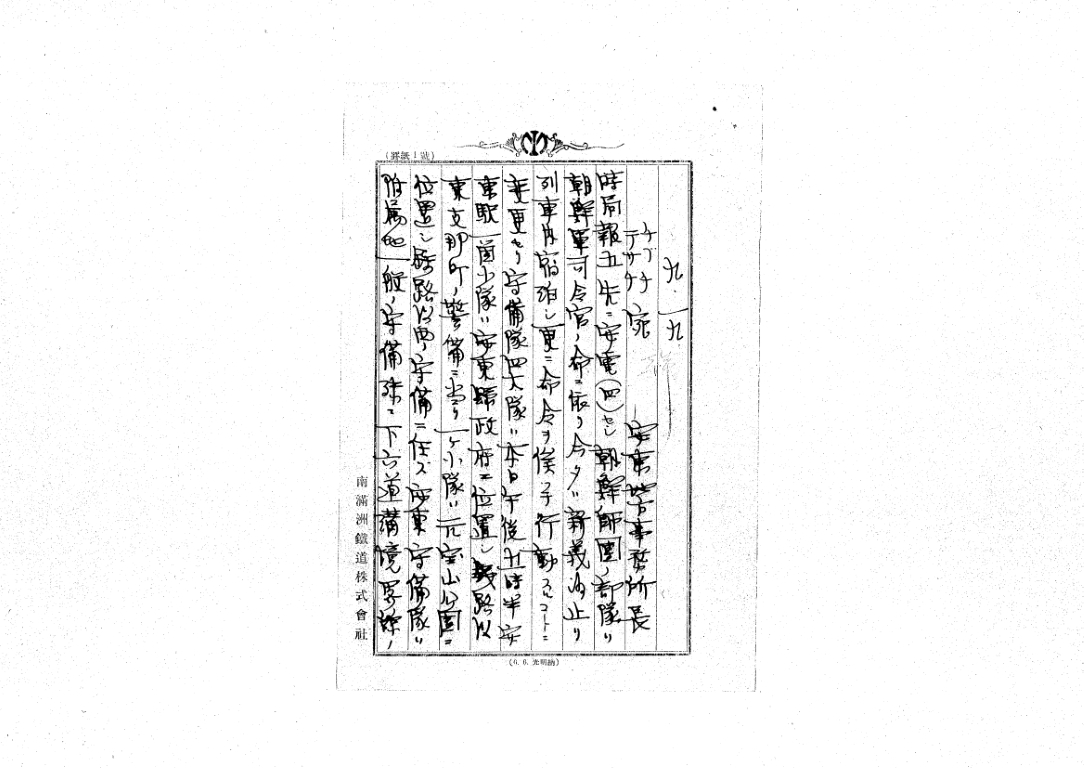 (罫紙1號)
九、一九
ケイチ
テツチ 宛
安東警事務所長
時局報五 先ニ安電(四)セシ朝鮮師團ノ部隊ハ
朝鮮軍司令官ノ命ニ依リ今夕ハ新義州止リ
列車内宿泊シ更ニ命令ヲ俟ッテ行動スルコトニ
変更セリ 守備隊四大隊ハ本日午後五時半安
東駅一箇小隊ハ安東縣政府ニ位置シ 路以
東支那町ノ警備ニ当リ一ケ小隊ハ元宝山公園ニ
位置シ 路以西ノ守備ニ任ズ安東守備隊ハ
附属地一般ノ守備殊ニ下六道溝境界線ノ
南滿洲鐵道株式會社
(6. 6. 光明納)